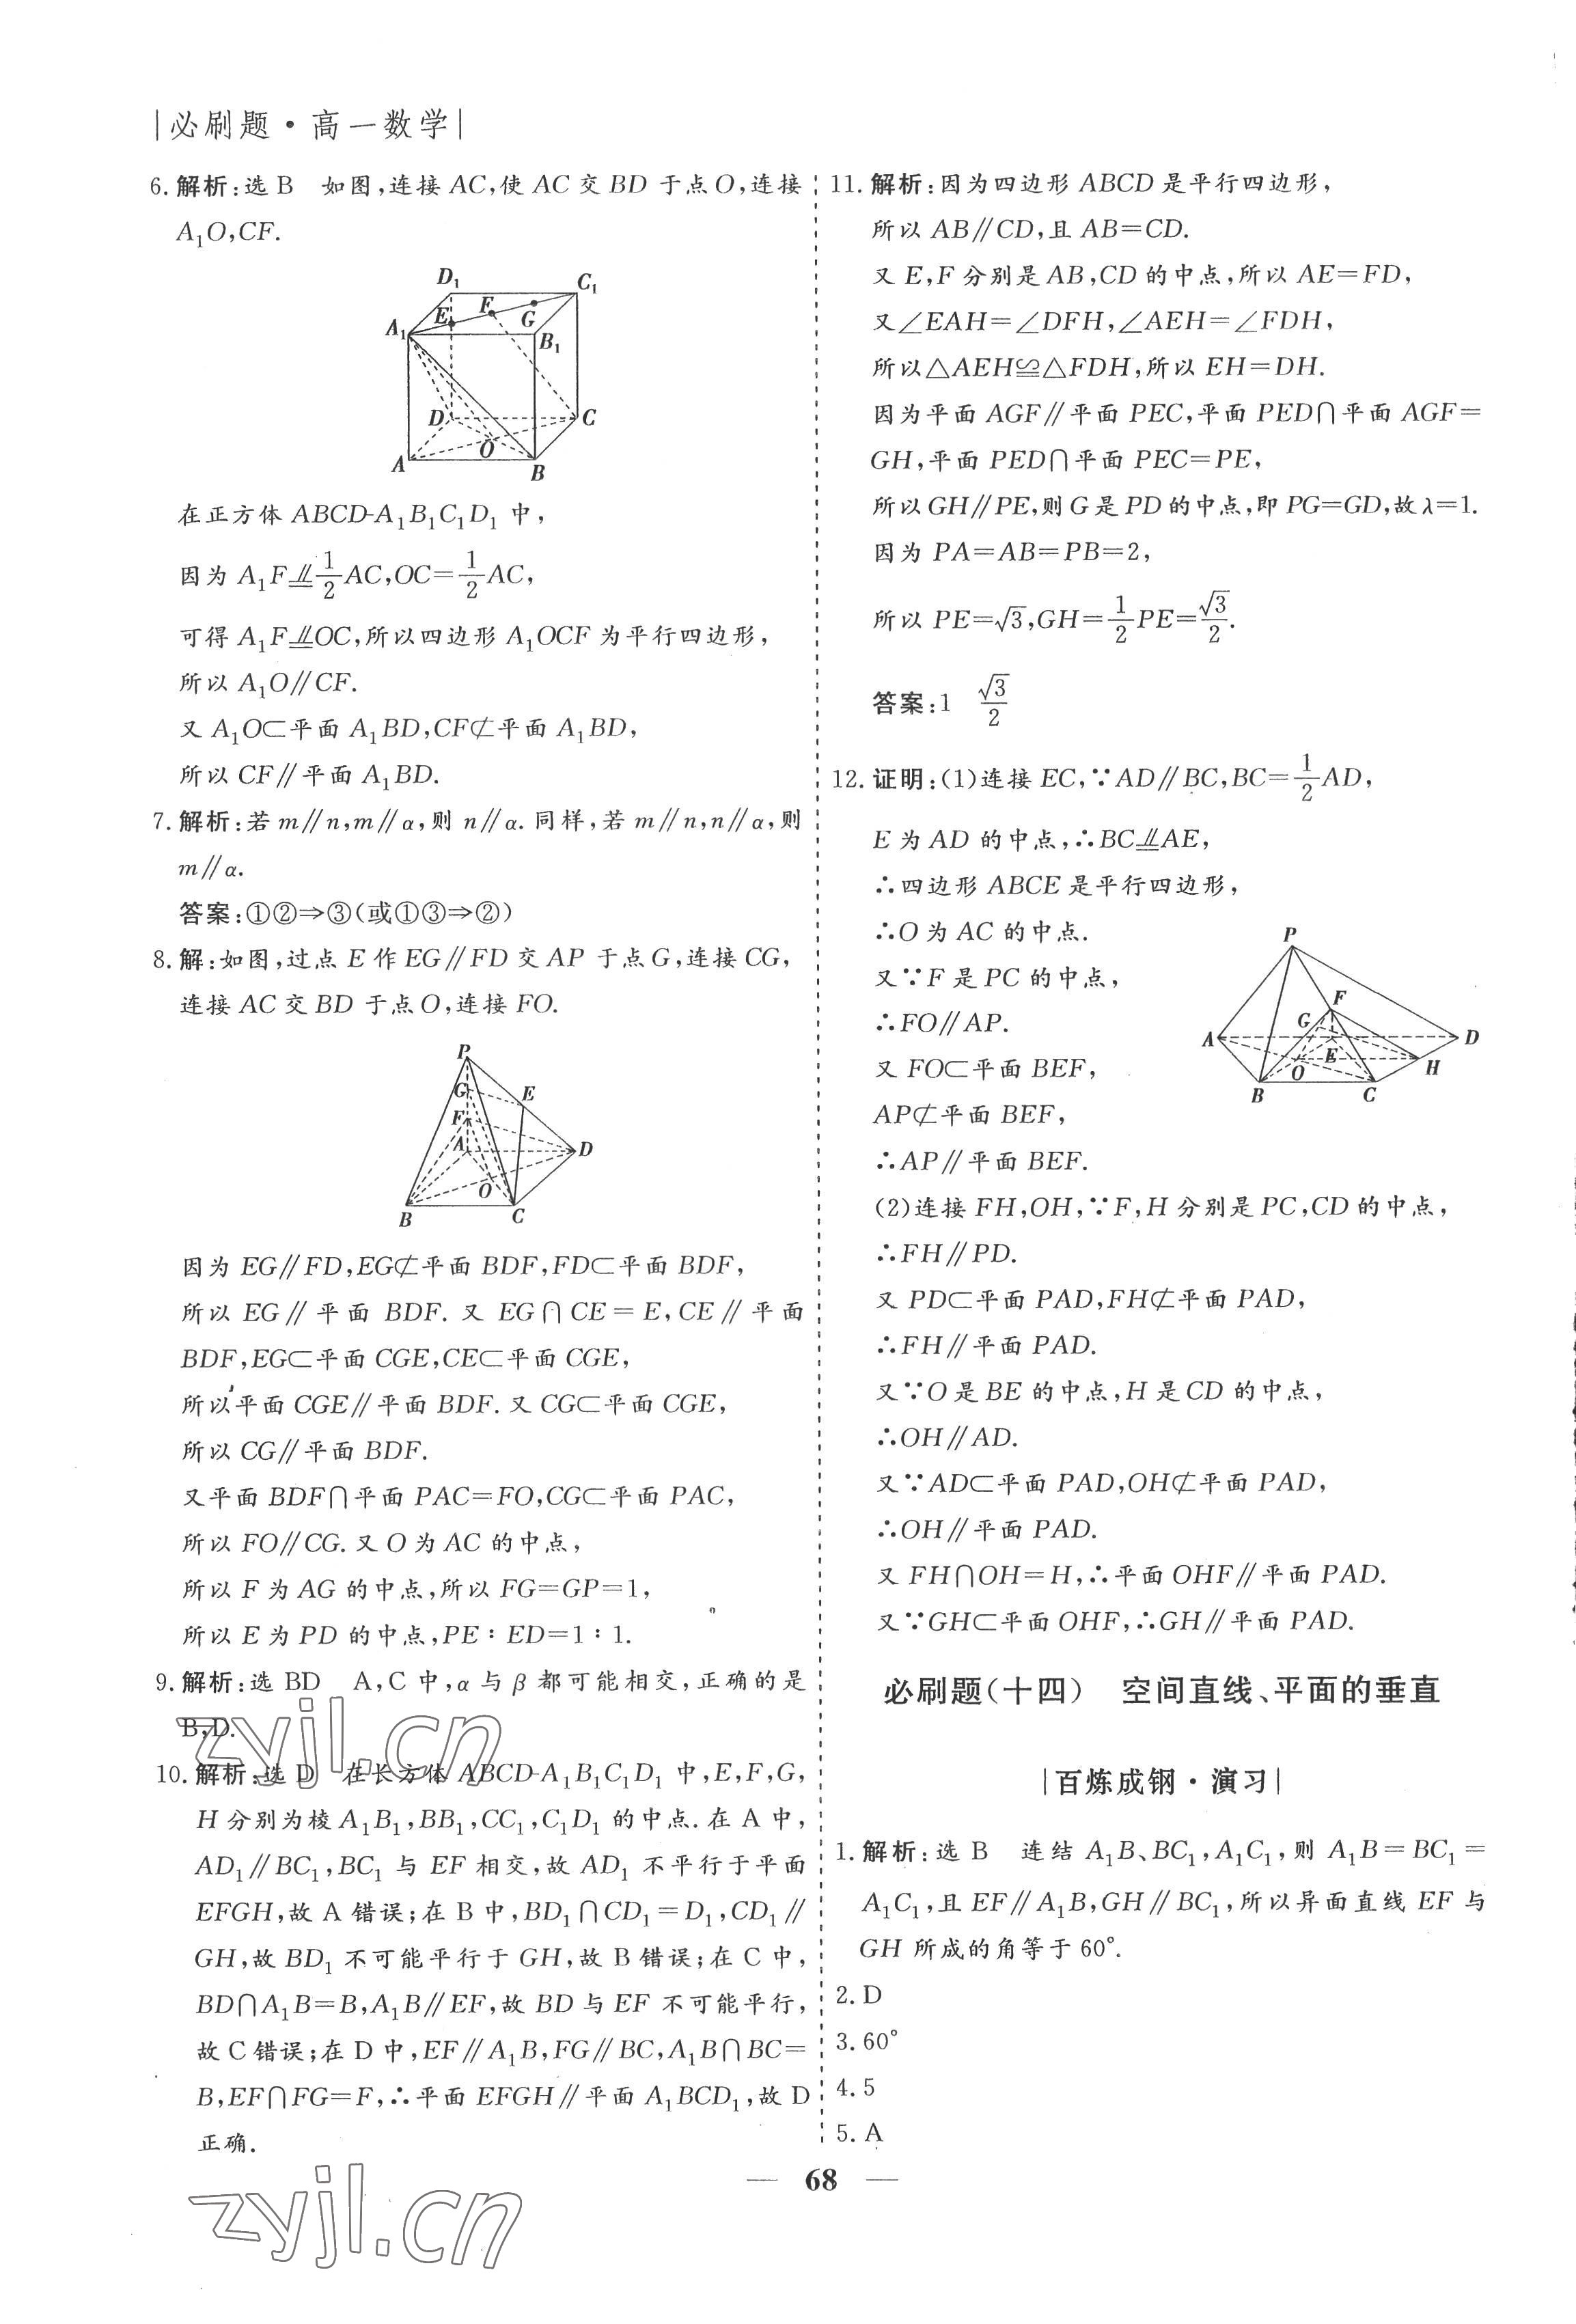 必刷题·高一数学
6. 解析:选 B 如图,连接 AC,使 AC 交 BD 于点 O,连接
A₁O,CF.
D₁
C₁
E
F
G
A₁
B₁
D
C
O
A
B
在正方体 ABCD-A₁B₁C₁D₁ 中,
因为 A₁F⫽1/2AC,OC=1/2AC,
可得 A₁F⫽OC,所以四边形 A₁OCF 为平行四边形,
所以 A₁O∥CF.
又 A₁O⊂平面 A₁BD,CF⊄平面 A₁BD,
所以 CF∥平面 A₁BD.
7. 解析:若 m∥n,m∥α,则 n∥α. 同样,若 m∥n,n∥α,则
m∥α.
答案:①②⇒③(或①③⇒②)
8. 解:如图,过点 E 作 EG∥FD 交 AP 于点 G,连接 CG,
连接 AC 交 BD 于点 O,连接 FO.
P
G
E
F
A
D
O
B
C
因为 EG∥FD,EG⊄平面 BDF,FD⊂平面 BDF,
所以 EG∥平面 BDF. 又 EG∩CE=E,CE∥平面
BDF,EG⊂平面 CGE,CE⊂平面 CGE,
所以平面 CGE∥平面 BDF. 又 CG⊂平面 CGE,
所以 CG∥平面 BDF.
又平面 BDF∩平面 PAC=FO,CG⊂平面 PAC,
所以 FO∥CG. 又 O 为 AC 的中点,
所以 F 为 AG 的中点,所以 FG=GP=1,
所以 E 为 PD 的中点,PE∶ED=1∶1.
9. 解析:选 BD A,C 中,α 与 β 都可能相交,正确的是
B,D.
10. 解析:选 D 在长方体 ABCD-A₁B₁C₁D₁ 中,E,F,G,
H 分别为棱 A₁B₁,BB₁,CC₁,C₁D₁ 的中点. 在 A 中,
AD₁∥BC₁,BC₁ 与 EF 相交,故 AD₁ 不平行于平面
EFGH,故 A 错误;在 B 中,BD₁∩CD₁=D₁,CD₁∥
GH,故 BD₁ 不可能平行于 GH,故 B 错误;在 C 中,
BD∩A₁B=B,A₁B∥EF,故 BD 与 EF 不可能平行,
故 C 错误;在 D 中,EF∥A₁B,FG∥BC,A₁B∩BC=
B,EF∩FG=F,∴平面 EFGH∥平面 A₁BCD₁,故 D
正确.
11. 解析:因为四边形 ABCD 是平行四边形,
所以 AB∥CD,且 AB=CD.
又 E,F 分别是 AB,CD 的中点,所以 AE=FD,
又∠EAH=∠DFH,∠AEH=∠FDH,
所以△AEH≌△FDH,所以 EH=DH.
因为平面 AGF∥平面 PEC,平面 PED∩平面 AGF=
GH,平面 PED∩平面 PEC=PE,
所以 GH∥PE,则 G 是 PD 的中点,即 PG=GD,故 λ=1.
因为 PA=AB=PB=2,
所以 PE=√3,GH=1/2PE=√3/2.
答案:1 √3/2
12. 证明:(1)连接 EC,∵AD∥BC,BC=1/2AD,
E 为 AD 的中点,∴BC⫽AE,
∴四边形 ABCE 是平行四边形,
∴O 为 AC 的中点.
又∵F 是 PC 的中点,
∴FO∥AP.
又 FO⊂平面 BEF,
AP⊄平面 BEF,
∴AP∥平面 BEF.
P
F
G
A
D
E
O
H
B
C
(2)连接 FH,OH,∵F,H 分别是 PC,CD 的中点,
∴FH∥PD.
又 PD⊂平面 PAD,FH⊄平面 PAD,
∴FH∥平面 PAD.
又∵O 是 BE 的中点,H 是 CD 的中点,
∴OH∥AD.
又∵AD⊂平面 PAD,OH⊄平面 PAD,
∴OH∥平面 PAD.
又 FH∩OH=H,∴平面 OHF∥平面 PAD.
又∵GH⊂平面 OHF,∴GH∥平面 PAD.
必刷题(十四) 空间直线、平面的垂直
百炼成钢·演习
1. 解析:选 B 连结 A₁B、BC₁,A₁C₁,则 A₁B=BC₁=
A₁C₁,且 EF∥A₁B,GH∥BC₁,所以异面直线 EF 与
GH 所成的角等于 60°.
2. D
3. 60°
4. 5
5. A
— 68 —
zyjl.cn
zyjl.cn